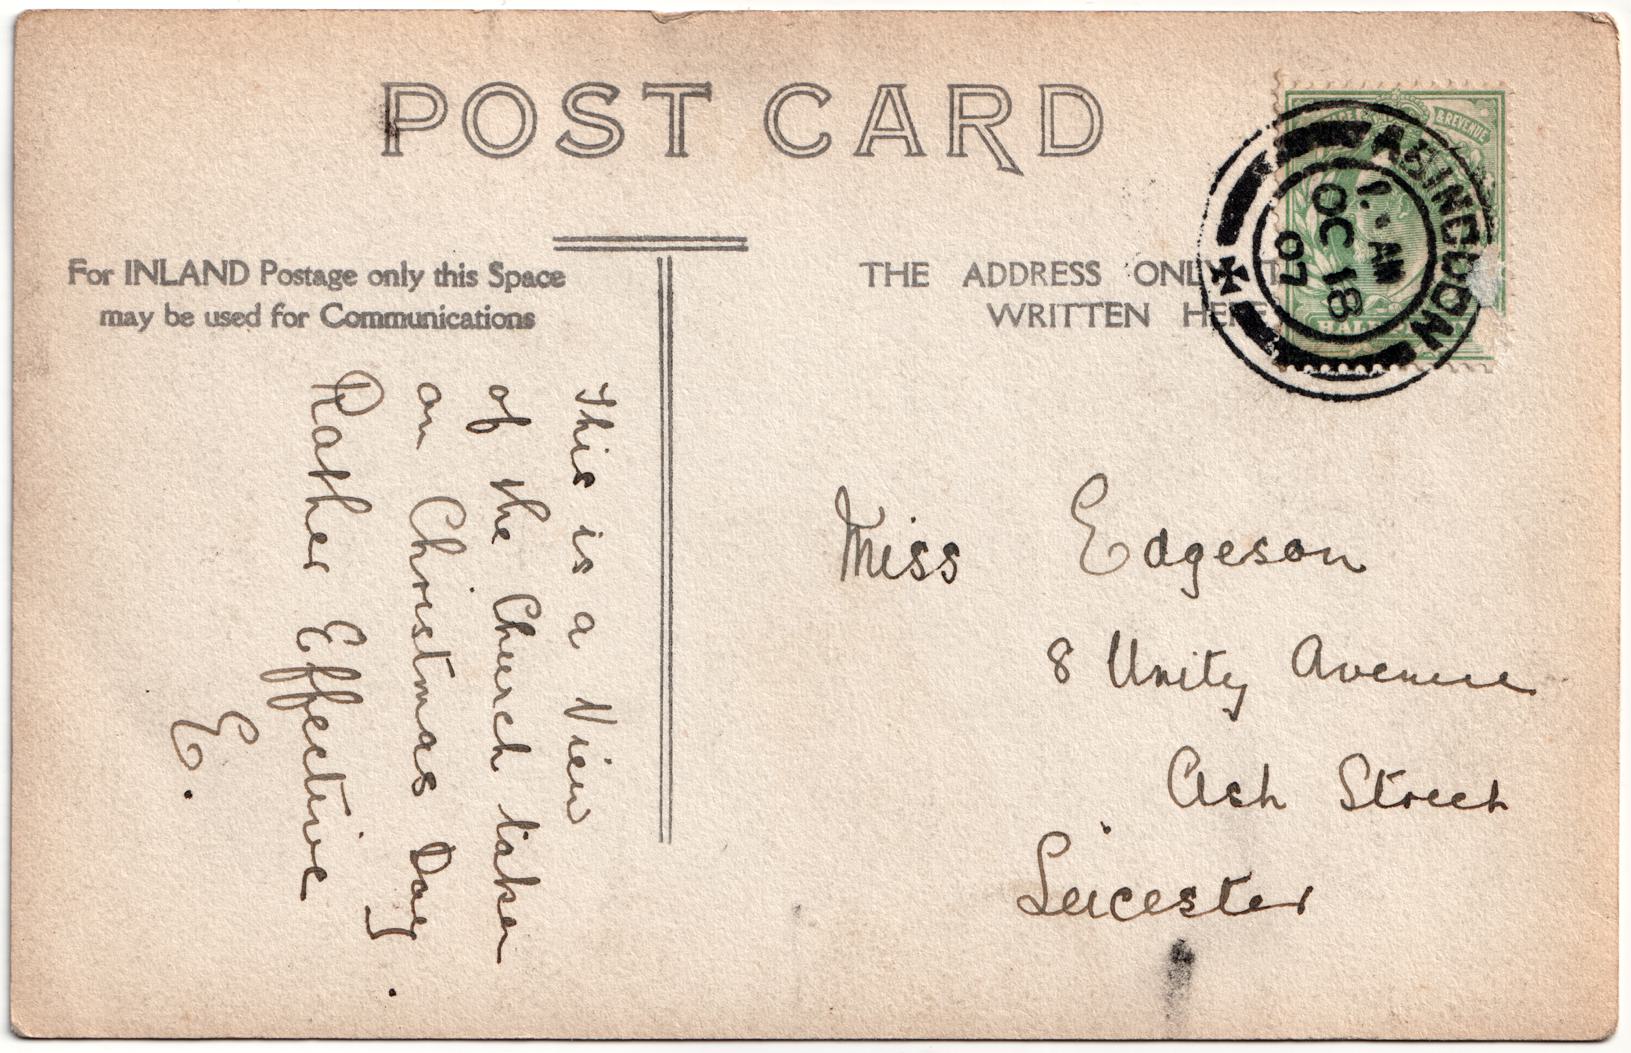 POST CARD
For INLAND Postage only this Space
may be used for Communications
THE ADDRESS ONLY
WRITTEN HERE
& REVENUE
ABINGDON
AM
OC 18
07
This is a View
of the Church taken
on Christmas Day.
Rather Effective
E.
Miss Edgeson
8 Unity Avenue
Ash Street
Leicester